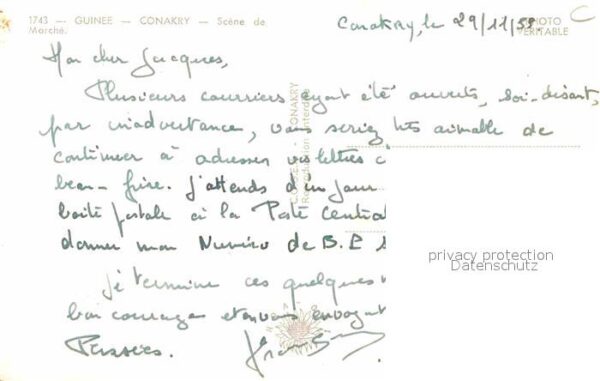 1743 — GUINEE — CONAKRY — Scène de
Marché.
PHOTO
VERITABLE
C
Conakry, le 29/11/55.
Mon cher Jacques,
Plusieurs courriers ayant été ouverts, soi-disant,
par inadvertance, vous seriez très aimable de
continuer à adresser vos lettres
beau-frère. J'attends d'un jour
boite postale à la Poste Central
donner mon Numéro de B.P
Je termine ces quelques
bon courage et en vous envoyant
Pensées.
CONAKRY
Reproduction interdite
privacy protection
Datenschutz